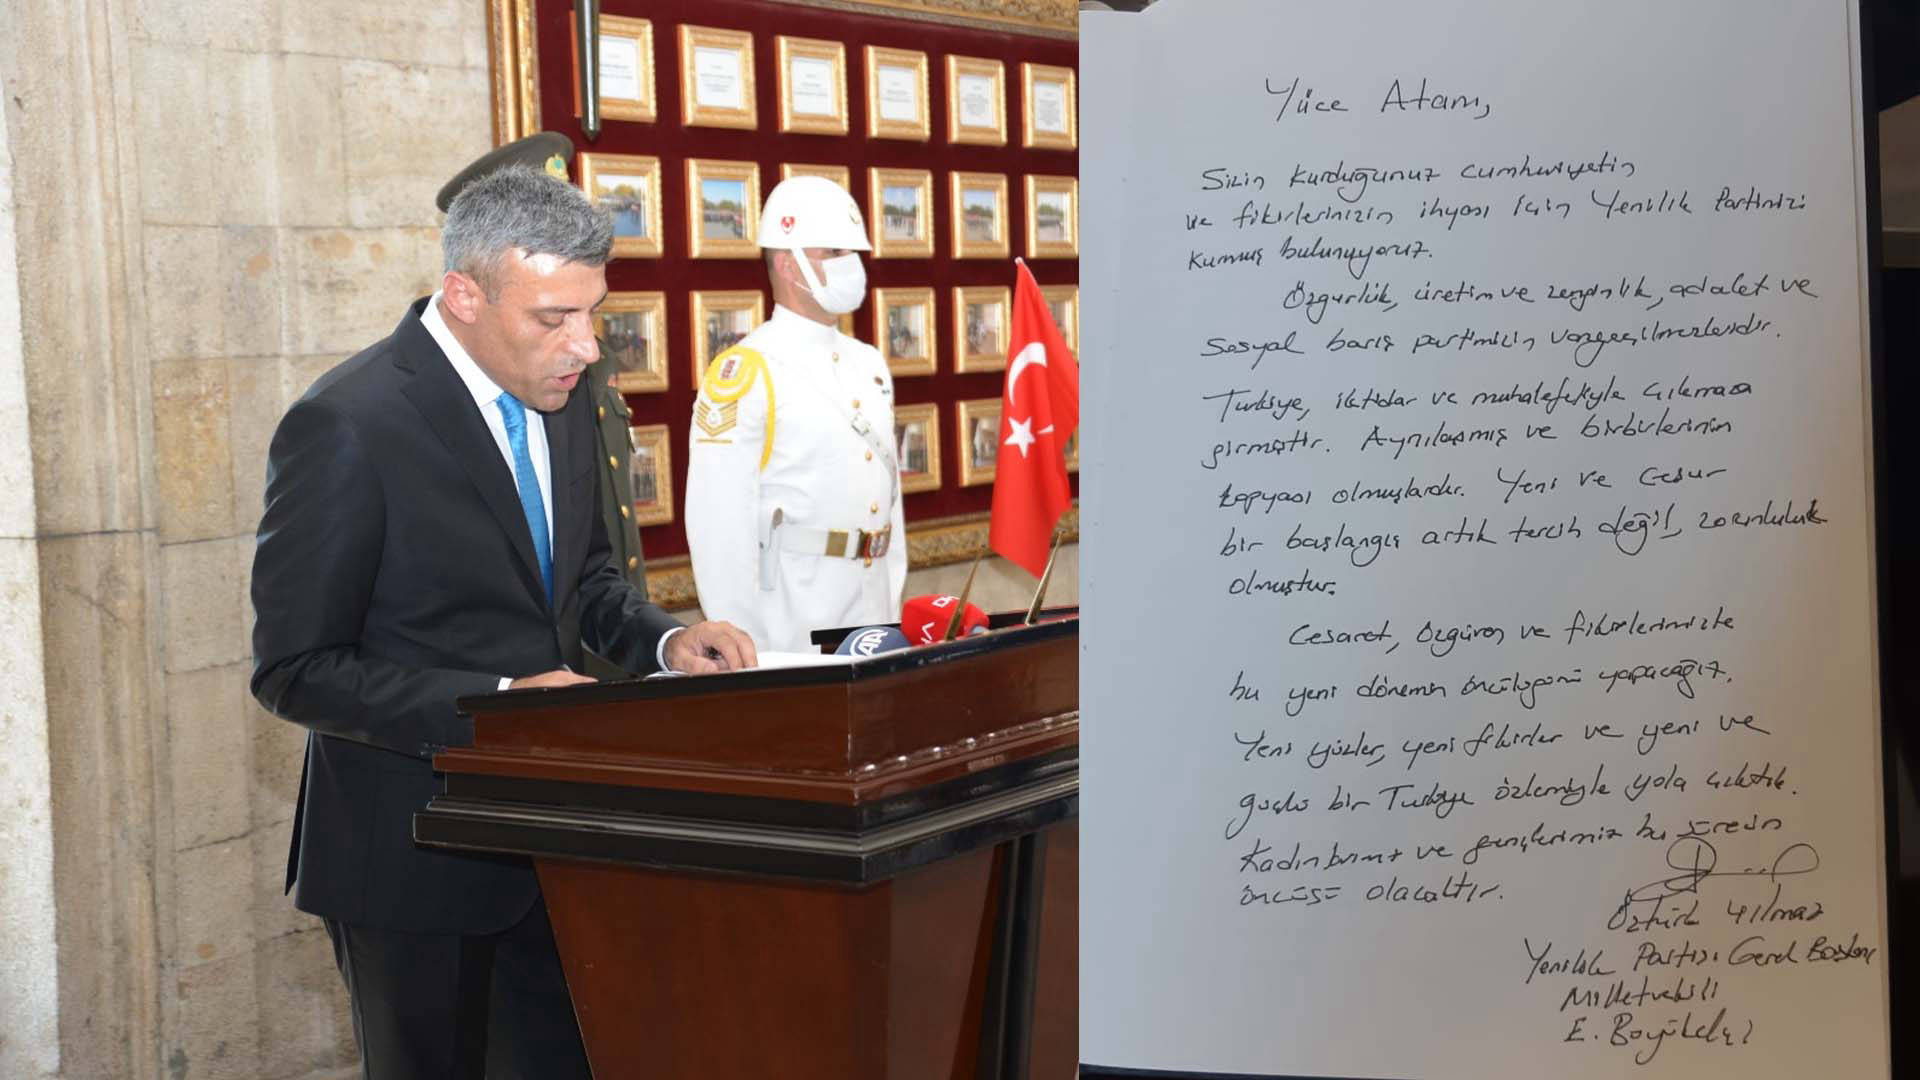 AA
Yüce Atam,
Sizin kurduğunuz cumhuriyetin
ve fikirlerinizin ihyası için Yenilik Partimizi
kurmuş bulunuyoruz.
Özgürlük, üretim ve zenginlik, adalet ve
Sosyal barış partimizin vazgeçilmezleridir.
Türkiye, iktidar ve muhalefetiyle çıkmaza
girmiştir. Aynılaşmış ve birbirlerinin
kopyası olmuşlardır. Yeni ve Cesur
bir başlangıç artık tercih değil, zorunluluk
olmuştur.
Cesaret, özgüven ve fikirlerimizle
bu yeni dönemin öncülüğünü yapacağız.
Yeni yüzler, yeni fikirler ve yeni ve
güçlü bir Türkiye özlemiyle yola çıktık.
Kadınlarımız ve gençlerimiz bu sürecin
öncüsü olacaktır.
Öztürk Yılmaz
Yenilik Partisi Genel Başkanı
Milletvekili
E. Büyükelçi